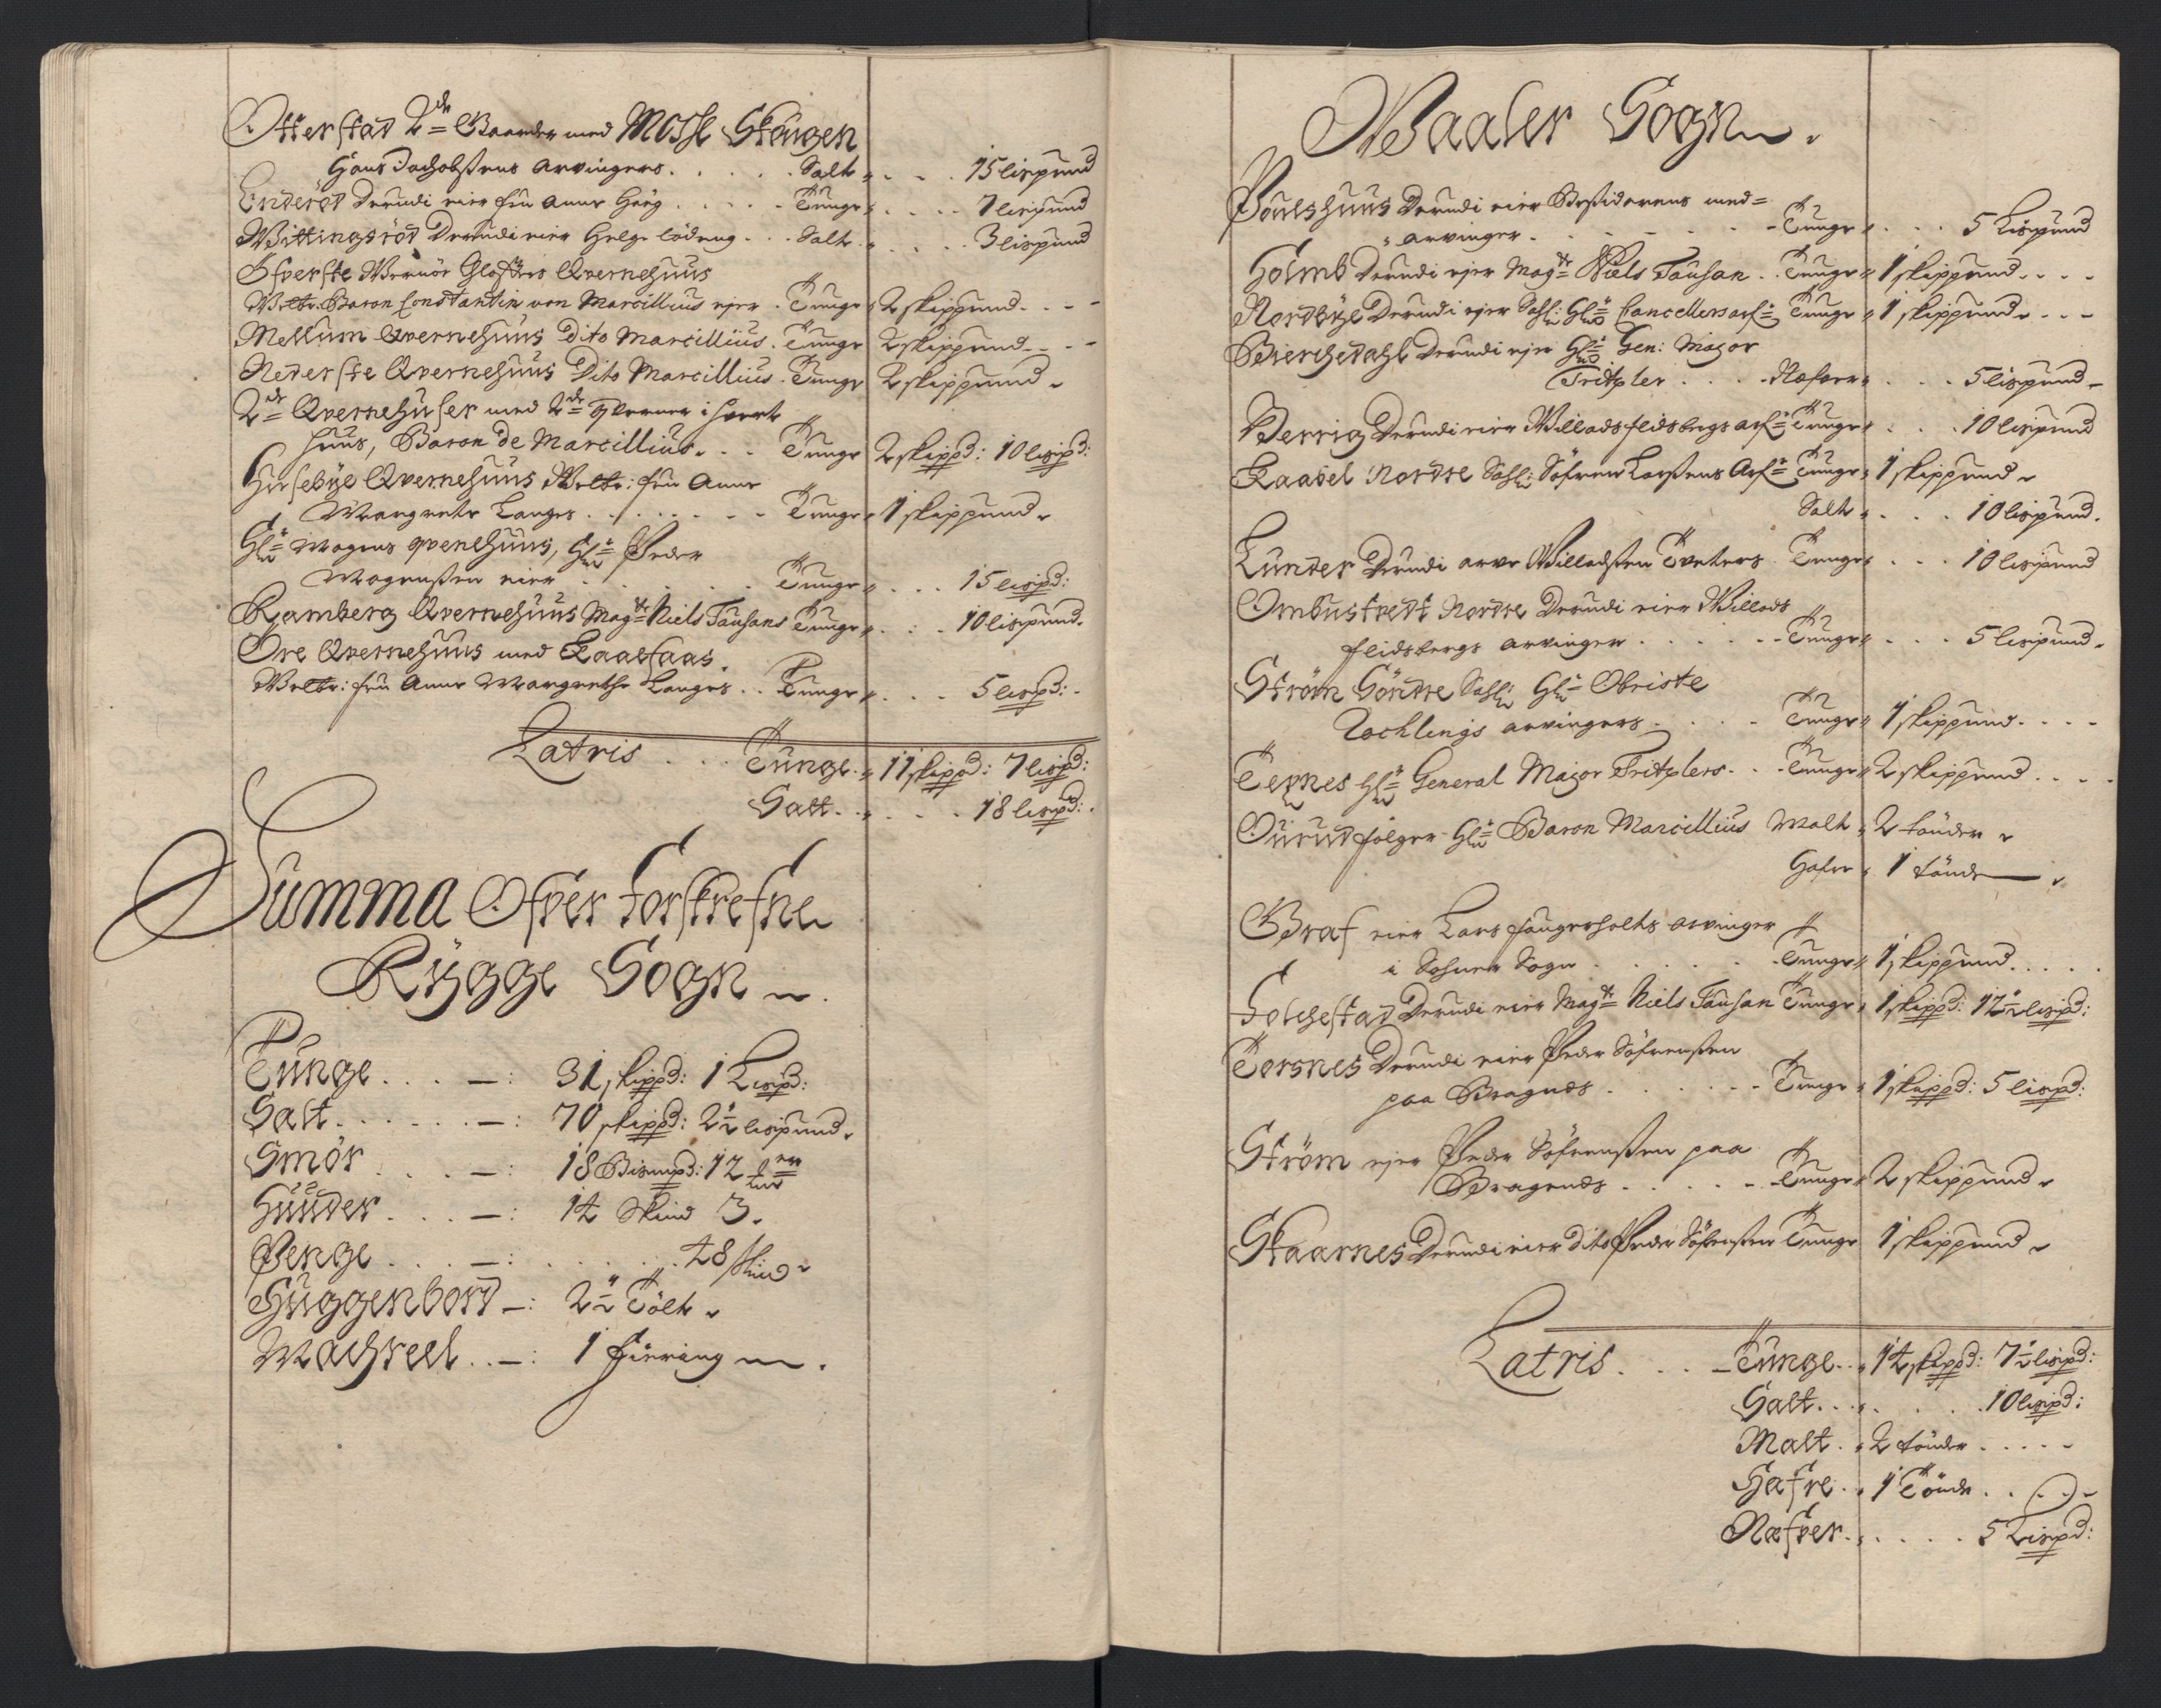 Otterstad 2de Gaarder med Mosse Skougen
Hans Jachobsens arvingers . . . . . Salt " . . . 15 lispund
Enderød Derudi eier fru Anne Høeg . . . . . Tunge " . . . . 7 lispund
Wittingsrød Derudi eier Helge lødeng . . . Salt " . . . . 3 lispund
Øfverste Wernøe Closters Qvernehuus
Welbr: Baron Constantin von Marcillius ejer . Tunge " 2 skippund . . . -
Mellum Qvernehuus Dito Marcillius . Tunge 2 skippund . . . -
Nederste Qvernehuus Dito Marcillius . Tunge 2 skippund
2de Qvernehuser med 2de qverner i hvert
huus, Baron de Marcillius . . . Tunge 2 skippd: 10 lispd:
Husebye Qvernehuus Welbr: fru Anne
Margrete Langes . . . . . . . - Tunge " 1 skippund
Hr: Mogens qvenehuus, Hr: Peder
Mogensen eier . . . . . . Tunge " . . . 15 lispd:
Ramberg Qvernehuus Magr Niels Tausans Tunge " . . . 10 lispund
Ore Qvernehuus med Kaalsaas.
Welbr: fru Anne Margrethe Langes . . Tunge " . . . 5 lispd: -
Latris . . . Tunge . " 11 skippd: 7 lispd:
Salt . . " . . . 18 lispd: .
Summa Ofver Forskrefne
Rygge Sogn
Tunge . . . - : 31 skippd: 1 Lispd:
Salt . . . . . . - : 70 skippd: 2½ lispund
Smør . . . . - : 18 Bismpd: 12
Huuder . . . - : 14 Skind 3.
Penge . . . - : . . . . . 48
Huggenbord - : 2½ Tølt
Machreel . . - : 1 fiering
Waaler Sogn
Poulshuus Derudi eier Besidderens med=
arvinger . . . . . . . - Tunge " . . . 5 Lispund
Holmb Derudi ejer Magr Niels Tausan . Tunge " 1 skippund . . . -
Nordbye Derudi ejer Sahl: Hr: Cancellers arf: Tunge " 1 skippund . . -
Bierchedahl Derudi ejer Hr: Gen: Major
Tritzler . . . . - Næfver " . . . 5 lispund
Berrig Derudi eier Willads flidsbergs arf: Tunge " . . . 10 lispund
Kaabel Nordre Sahl: Søfren Larsens Arf: Tunge " 1 skippund
Salt " . . . 10 lispund.
Lunder Derudi arve Willadsen Tveters . Tunge " . . . 10 lispund
Ombustvedt Nordre Derudi eier Willads
flidsbergs arvinger . . . . . - Tunge " . . . 5 lispund
Strøm Søndre Sahl: Hr: Obriste
Rochlings arvingers . . . . - Tunge " 1 skippund . . . -
Teznes Hr: General Major Tritzlers . . - Tunge " 2 skippund . . . .
Ourud følger Hr: Baron Marcillius Malt " 2 tønder
Hafre " 1 tønde
Graf eier Lars fougerholts arvinger
i Sohner Sogn . . . . . - Tunge " 1 skippund . . . . .
Folchestad Derudi eier Magr Niels Tausan Tunge " 1 skippd: 12½ lispd:
Torsnes Derudi eier Peder Søfrensen
paa Bragnæs . . . . . . - Tunge " 1 skippd: 5 lispd:
Strøm ejer Peder Søfrensen paa
Bragenæs . . . . . - Tunge " 2 skippund
Skaarnes Derudi eier dito Peder Søfrensen Tunge 1 skippund
Latris . . . - Tunge . . " 14 skippd: 7½ lispd:
Salt . . . " . . . . 10 lispd:
Malt . " 2 tønder . . . . -
Hafre . " 1 Tønde . . . . -
Næfver . " . . . . 5 Lispd: